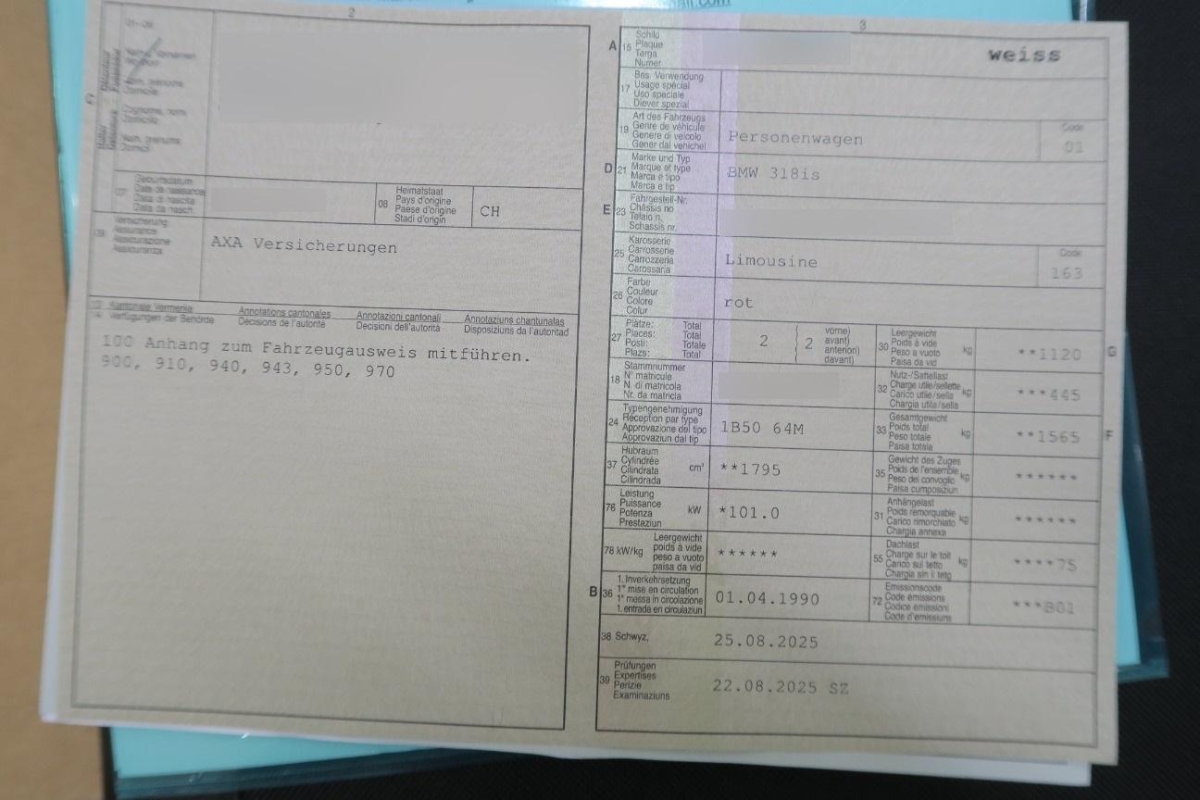 ail.com
2
3
08 Heimatstaat
Pays d'origine
Paese d'origine
Stadi d'origin
CH
Versicherung
Assurance
Assicurazione
Assicuranza
AXA Versicherungen
Kantonale Vermerke Annotations cantonales Annotazioni cantonali Annotaziuns chantunalas
14 Verfügungen der Behörde Décisions de l'autorité Decisioni dell'autorità Disposiziuns da l'autoritad
100 Anhang zum Fahrzeugausweis mitführen.
900, 910, 940, 943, 950, 970
A 15 Schild
Plaque
Targa
Numer
weiss
17 Bes. Verwendung
Usage spécial
Uso speciale
Diever spezial
19 Art des Fahrzeugs
Genre de véhicule
Genere di veicolo
Gener dal vehichel
Personenwagen
Code
01
D 21 Marke und Typ
Marque et type
Marca e tipo
Marca e tip
BMW 318is
E 23 Fahrgestell-Nr.
Châssis no
Telaio n.
Schassis nr.
25 Karosserie
Carrosserie
Carrozzeria
Carossaria
Limousine
Code
163
26 Farbe
Couleur
Colore
Colur
rot
27 Plätze: Total
Places: Total
Posti: Totale
Plazs: Total
2
2
vorne)
avant)
anteriori)
davant)
30 Leergewicht
Poids à vide
Peso a vuoto
Paisa da vid
kg
**1120
G
18 Stammnummer
N° matricule
N. di matricola
Nr. da matricla
32 Nutz-/Sattellast
Charge utile/sellette
Carico utile/sella
Chargia utila/sella
kg
***445
24 Typengenehmigung
Réception par type
Approvazione del tipo
Approvaziun dal tip
1B50 64M
33 Gesamtgewicht
Poids total
Peso totale
Paisa totala
kg
**1565
F
37 Hubraum
Cylindrée
Cilindrata
Cilindrada
cm³
**1795
35 Gewicht des Zuges
Poids de l'ensemble
Peso del convoglio
Paisa cumposiziun
kg
******
76 Leistung
Puissance
Potenza
Prestaziun
kW
*101.0
31 Anhängelast
Poids remorquable
Carico rimorchiato
Chargia annexa
kg
******
78 kW/kg
Leergewicht
poids à vide
peso a vuoto
paisa da vid
******
55 Dachlast
Charge sur le toit
Carico sul tetto
Chargia sin il tetg
kg
****75
B 36 1. Inverkehrsetzung
1re mise en circulation
1a messa in circolazione
1. entrada en circulaziun
01.04.1990
72 Emissionscode
Code émissions
Codice emissioni
Code d'emissiuns
***B01
38 Schwyz,
25.08.2025
39 Prüfungen
Expertises
Perizie
Examinaziuns
22.08.2025 SZ